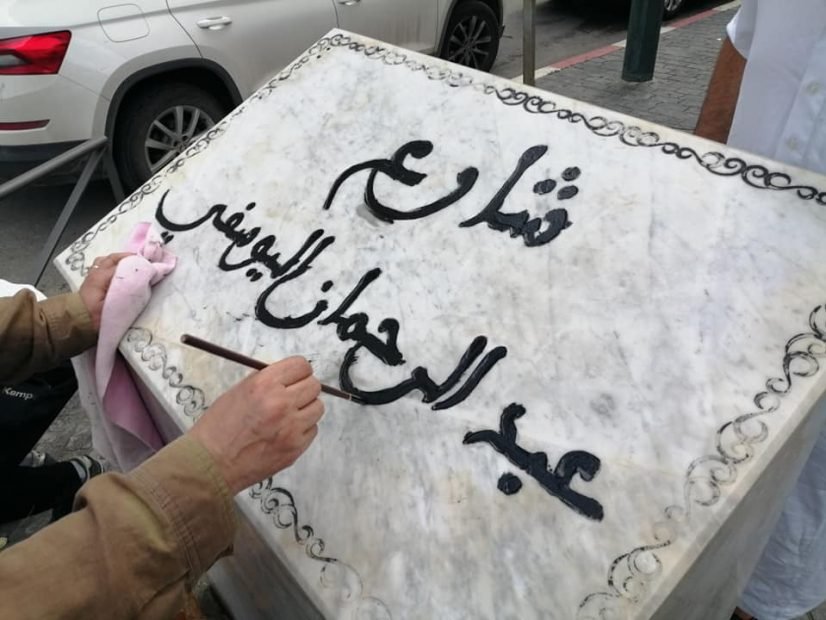 شارع
عبد الرحمان اليوسفي
Kemp